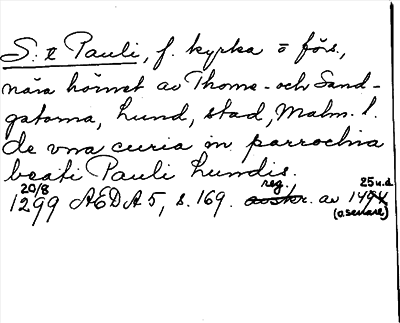 S:t Pauli, f. kyrka o förs.,
nära hörnet av Thoms- och Sand-
gatorna, Lund, stad, Malm. l.
de vna curia in parrochia
beati Pauli Lundis.
20/8 reg. 25 u.d.
1299 AEDA 5, s. 169. avskr. av 1494
(o. senare)